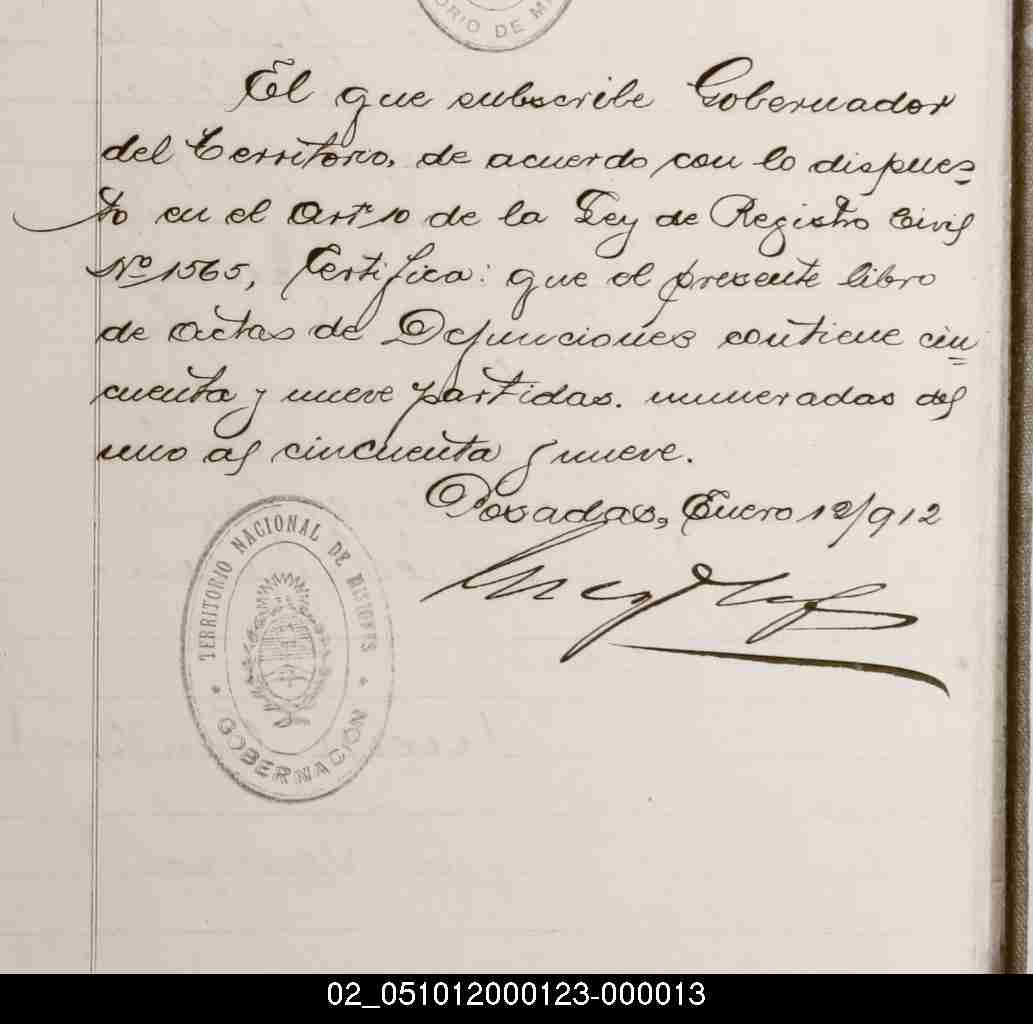 ORIO DE MI
El que subscribe Gobernador
del Territorio, de acuerdo con lo dispues-
to en el Art° 10 de la Ley de Registro Civil
Nº 1565, Certifica: que el presente libro
de actas de Defunciones contiene cin=
cuenta y nueve partidas. numeradas del
uno al cincuenta y nueve.
Posadas, Enero 12/912
TERRITORIO NACIONAL DE MISIONES
GOBERNACIÓN
02_051012000123-000013